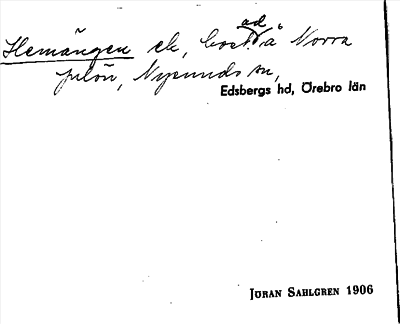 Hemängen ek, bost. ad å Norra
pilön, Nysunds sn,
Edsbergs hd, Örebro län
JÖRAN SAHLGREN 1906